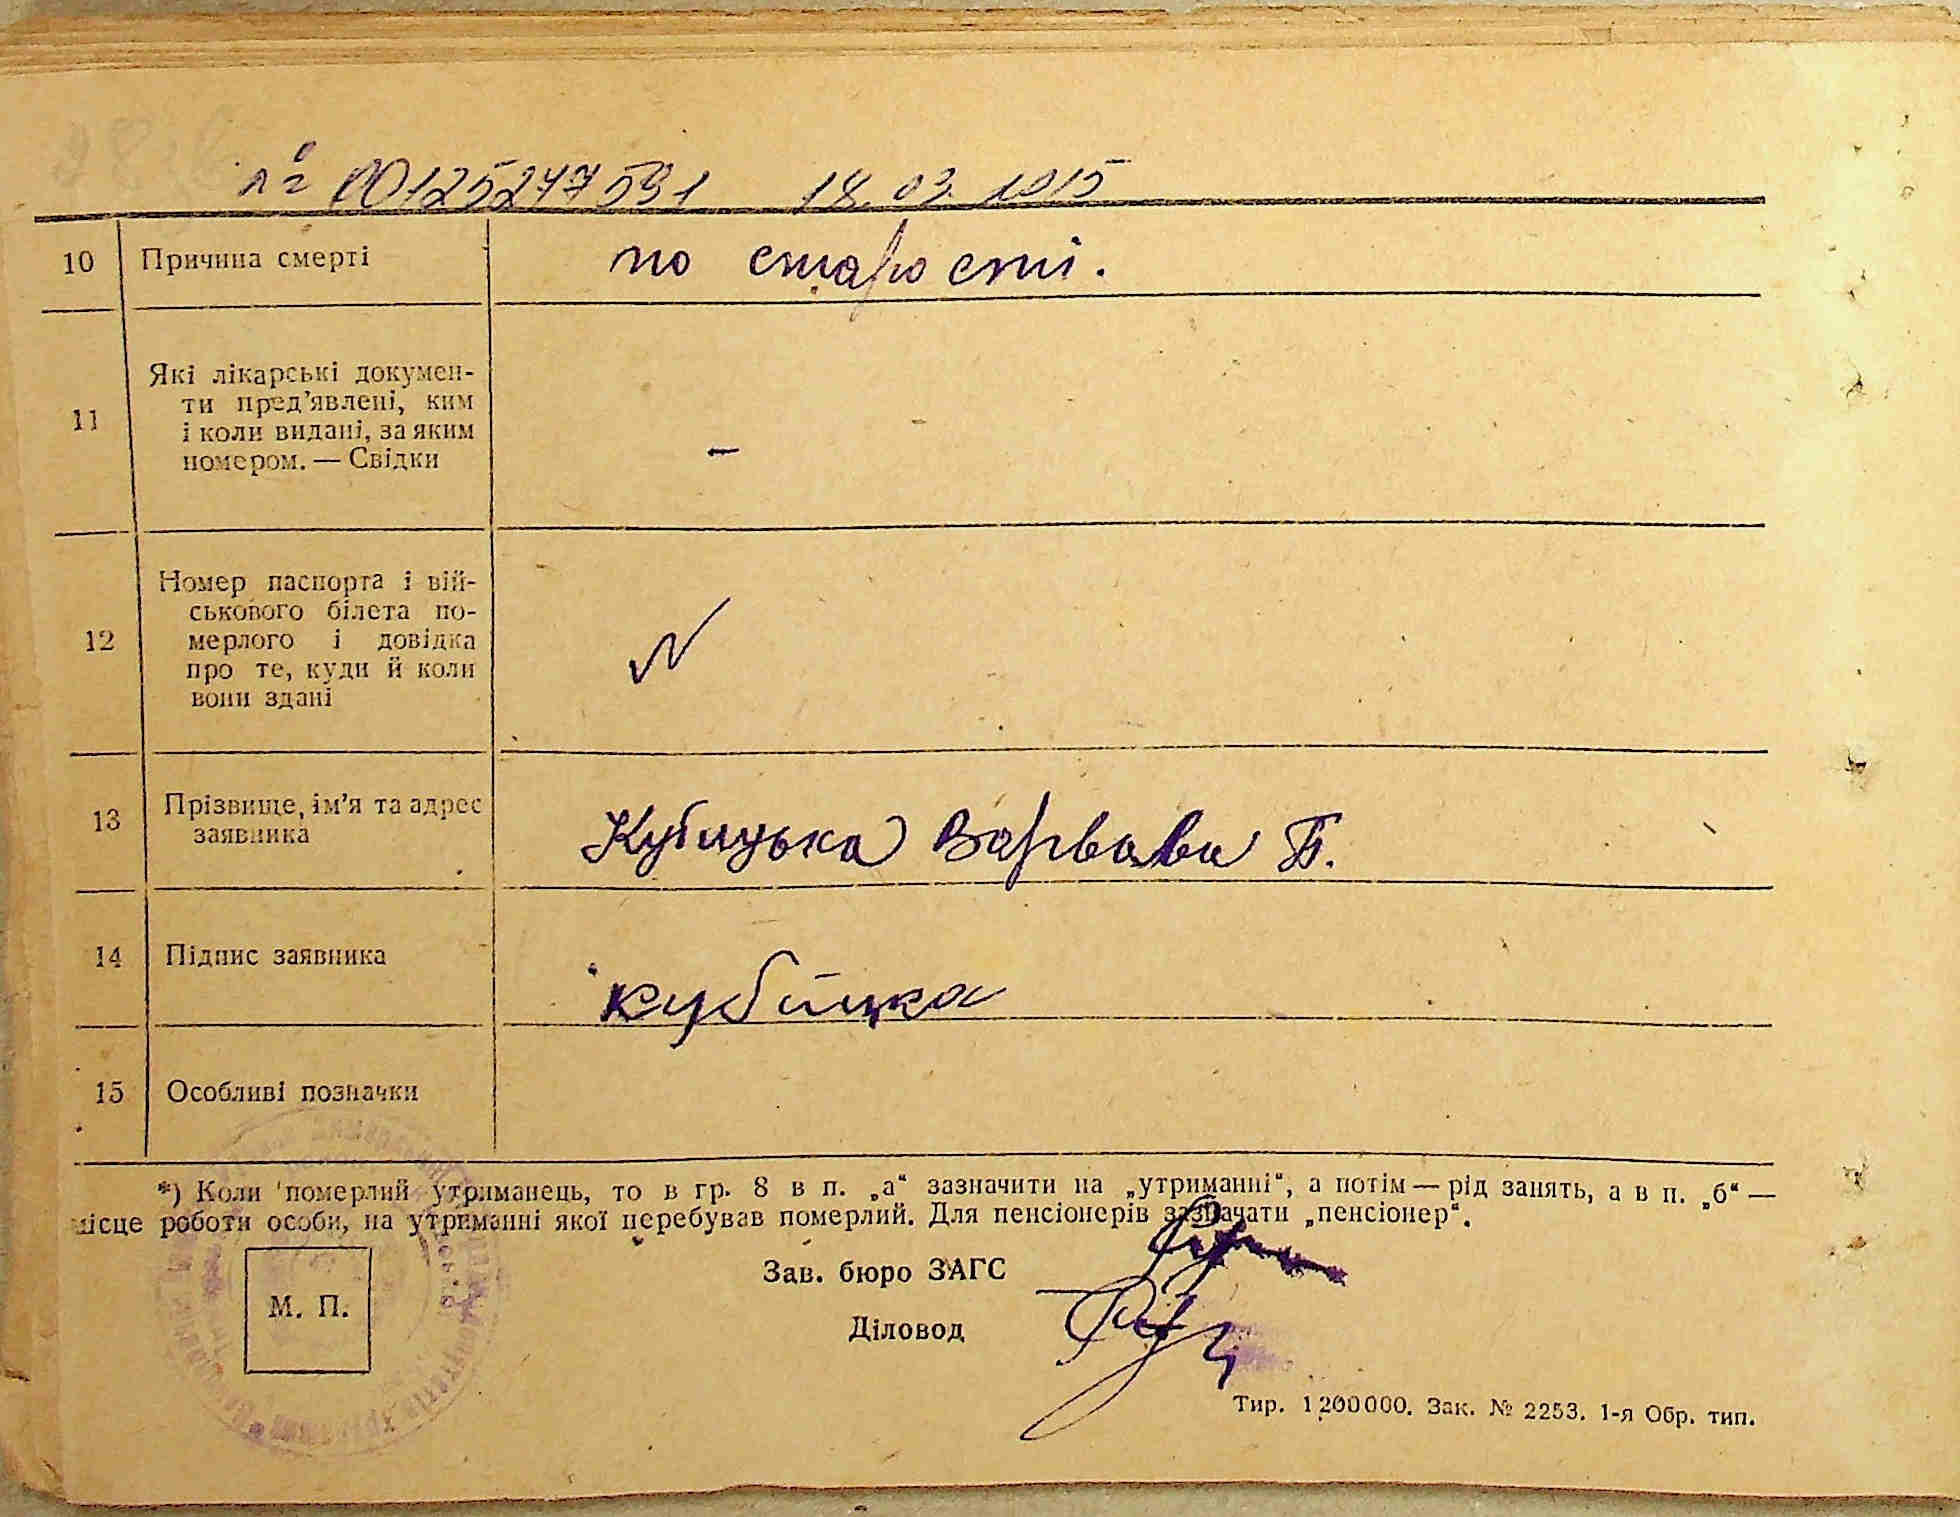 № 00125247591 18.03.2015
10 Причина смерті по старості.
11 Які лікарські докумен-
ти пред'явлені, ким
і коли видані, за яким
номером. — Свідки –
12 Номер паспорта і вій-
ськового білета по-
мерлого і довідка
про те, куди й коли
вони здані
13 Прізвище, ім'я та адрес
заявника Кубицька Варвара Т.
14 Підпис заявника Кубіцка
15 Особливі позначки
*) Коли померлий утриманець, то в гр. 8 в п. „а“ зазначити на „утриманні“, а потім — рід занять, а в п. „б“ —
місце роботи особи, на утриманні якої перебував померлий. Для пенсіонерів зазначати „пенсіонер“.
Зав. бюро ЗАГС
М. П.
Діловод
Тир. 1200000. Зак. № 2253. 1-я Обр. тип.